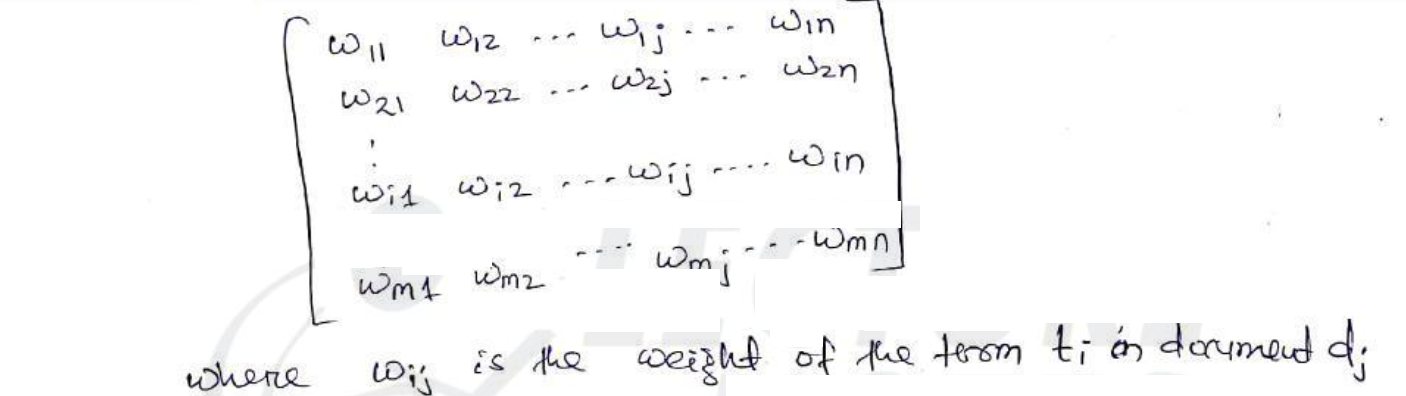 w11 w12 ... w1j ... w1n
w21 w22 ... w2j ... w2n
⋮
wi1 wi2 ... wij .... win
wm1 wm2 .... wmj ... wmn
where wij is the weight of the term ti in document dj